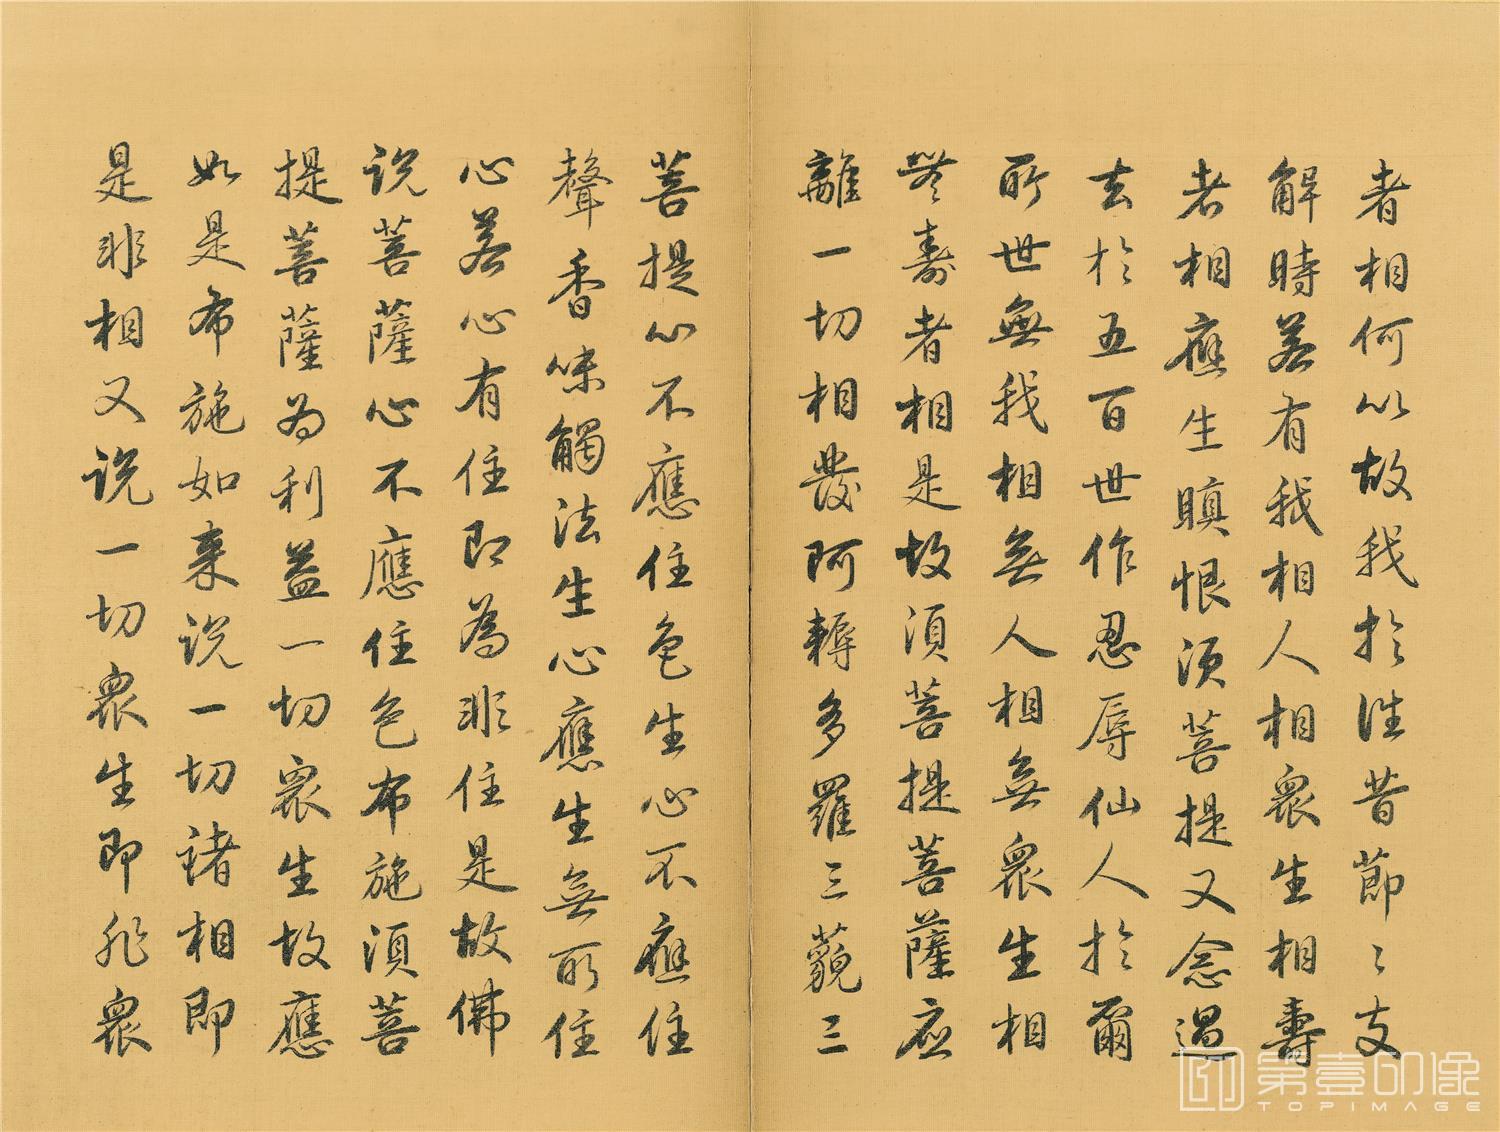 者相何以故我於往昔節〻支
解時若有我相人相衆生相壽
者相應生瞋恨須菩提又念過
去於五百世作忍辱仙人於爾
所世無我相無人相無衆生相
無壽者相是故須菩提菩薩應
離一切相發阿耨多羅三藐三
菩提心不應住色生心不應住
聲香味觸法生心應生無所住
心若心有住即為非住是故佛
說菩薩心不應住色布施須菩
提菩薩為利益一切衆生故應
如是布施如来說一切諸相即
是非相又說一切衆生即非衆
第壹印像
TOPIMAGE